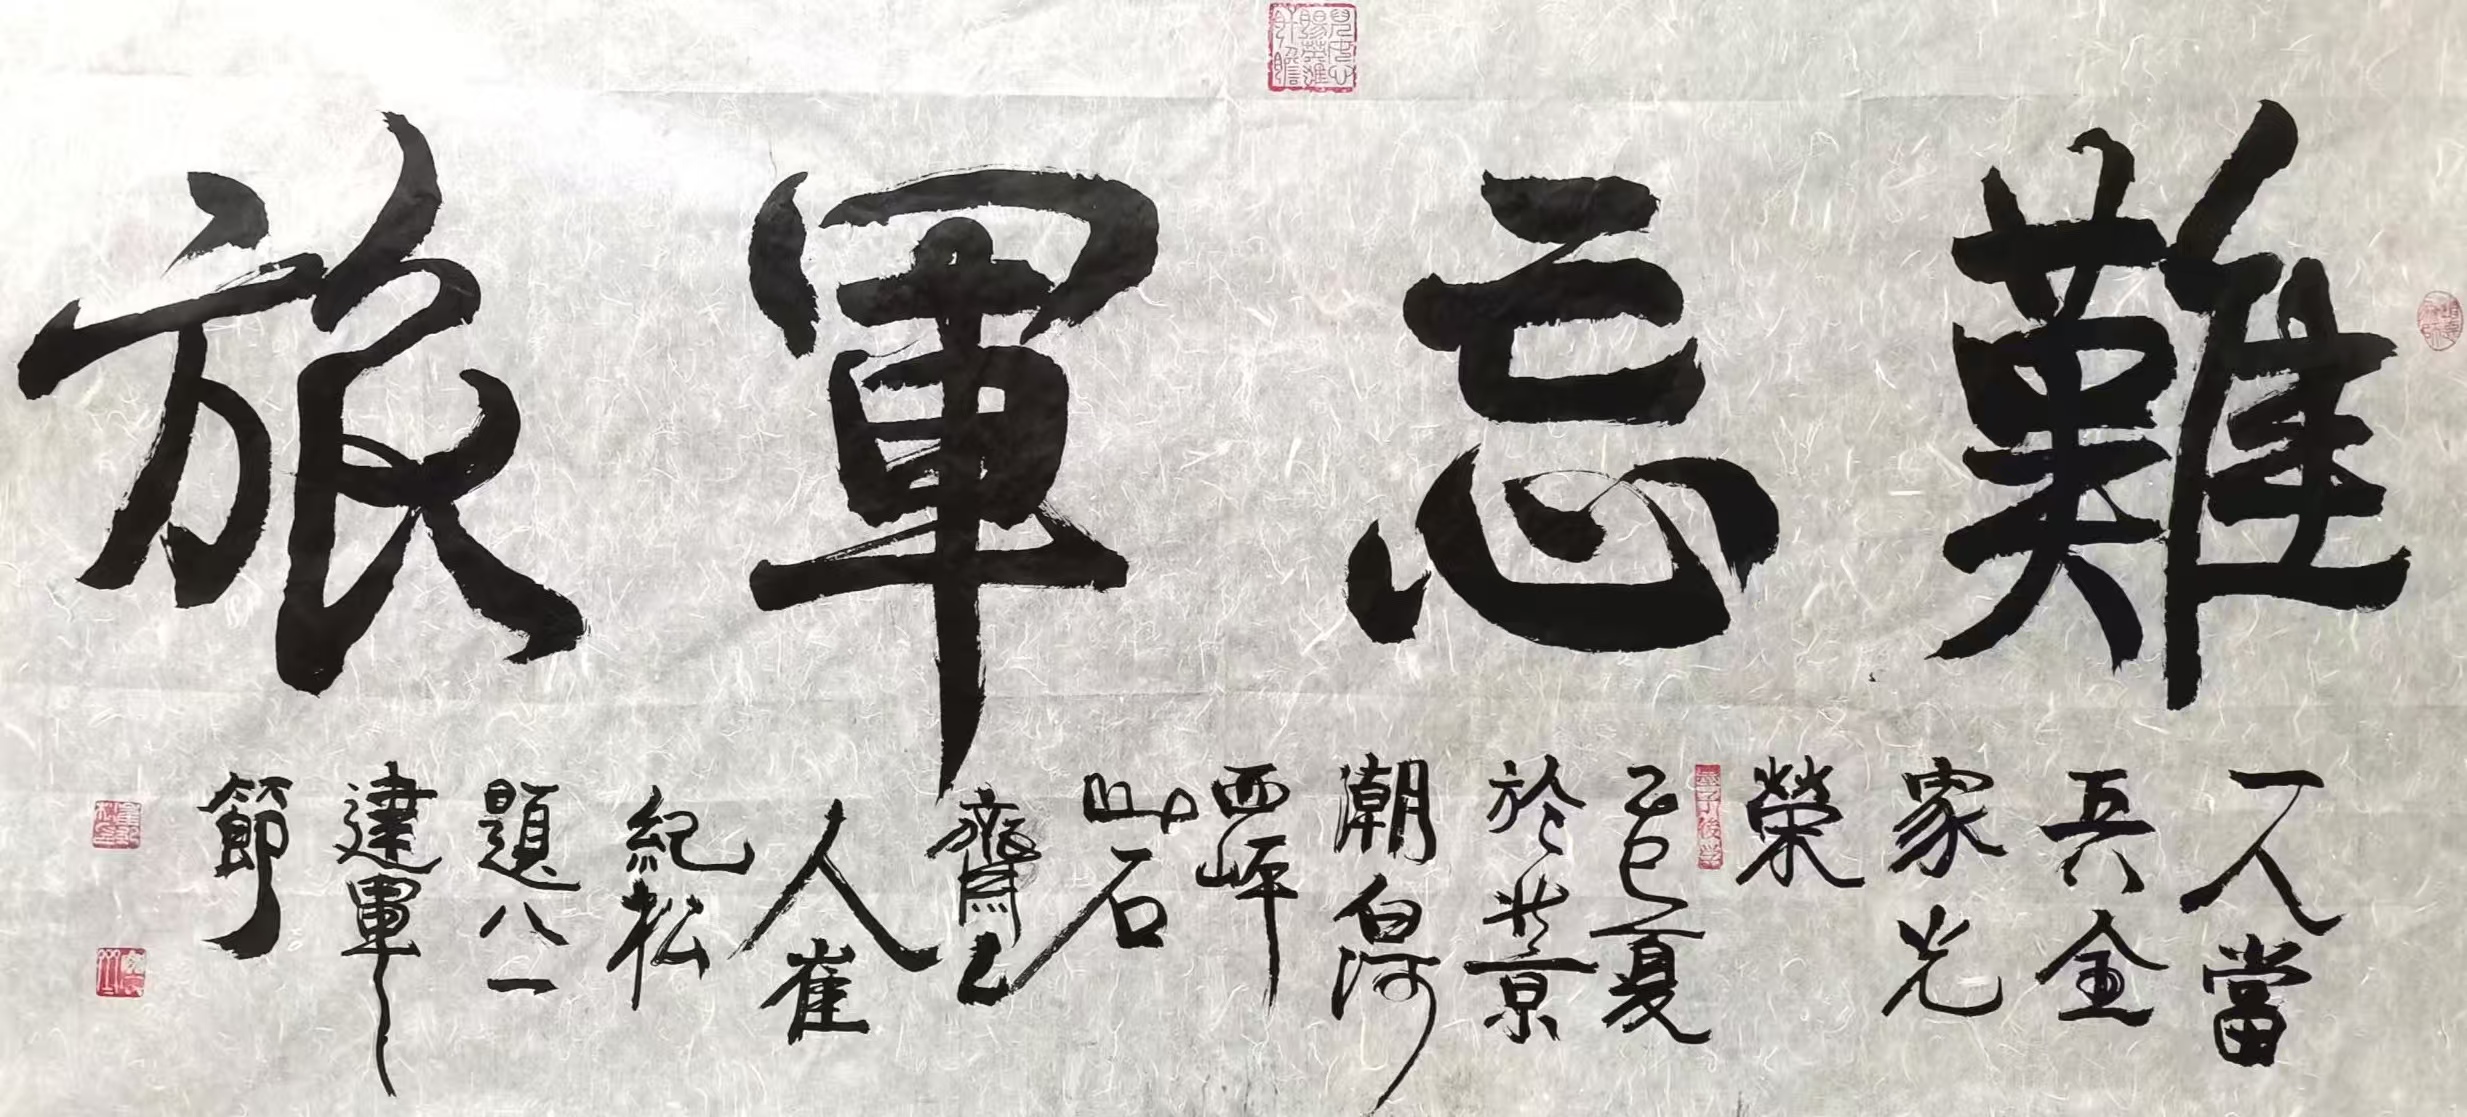 難忘軍旅
一人當
兵全
家光
榮
乙巳夏
於北京
潮白河
西岸
山石
齋主
人崔
紀松
題八一
建軍
節